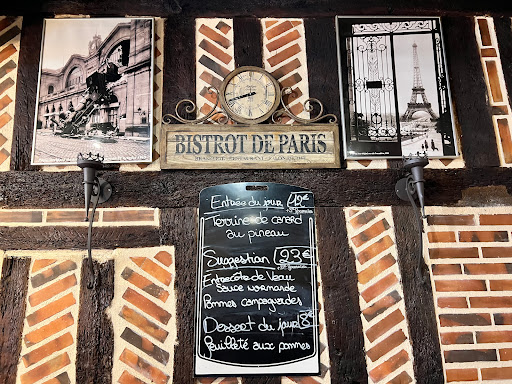 BISTROT DE PARIS
Entrée du jour 12€
Terrine de canard
au pineau
Suggestion 23€
Entrecôte de Veau
Sauce normande
Pommes campagnardes
Dessert du jour 8€
Feuilleté aux pommes